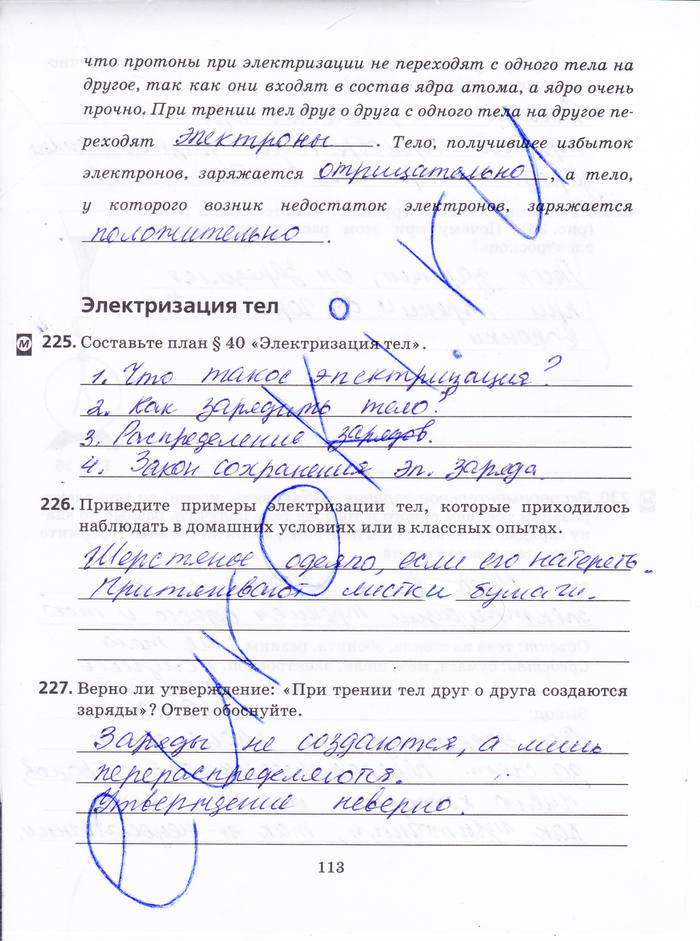 что протоны при электризации не переходят с одного тела на
другое, так как они входят в состав ядра атома, а ядро очень
прочно. При трении тел друг о друга с одного тела на другое пе-
реходят электроны. Тело, получившее избыток
электронов, заряжается отрицательно, а тело,
у которого возник недостаток электронов, заряжается
положительно.
Электризация тел
М 225. Составьте план § 40 «Электризация тел».
1. Что такое электризация?
2. Как зарядить тело?
3. Распределение зарядов.
4. Закон сохранения эл. заряда.
226. Приведите примеры электризации тел, которые приходилось
наблюдать в домашних условиях или в классных опытах.
Шерстяное одеяло, если его натереть.
Притягивают листки бумаги.
227. Верно ли утверждение: «При трении тел друг о друга создаются
заряды»? Ответ обоснуйте.
Заряды не создаются, а лишь
перераспределяются.
Утверждение неверно.
113